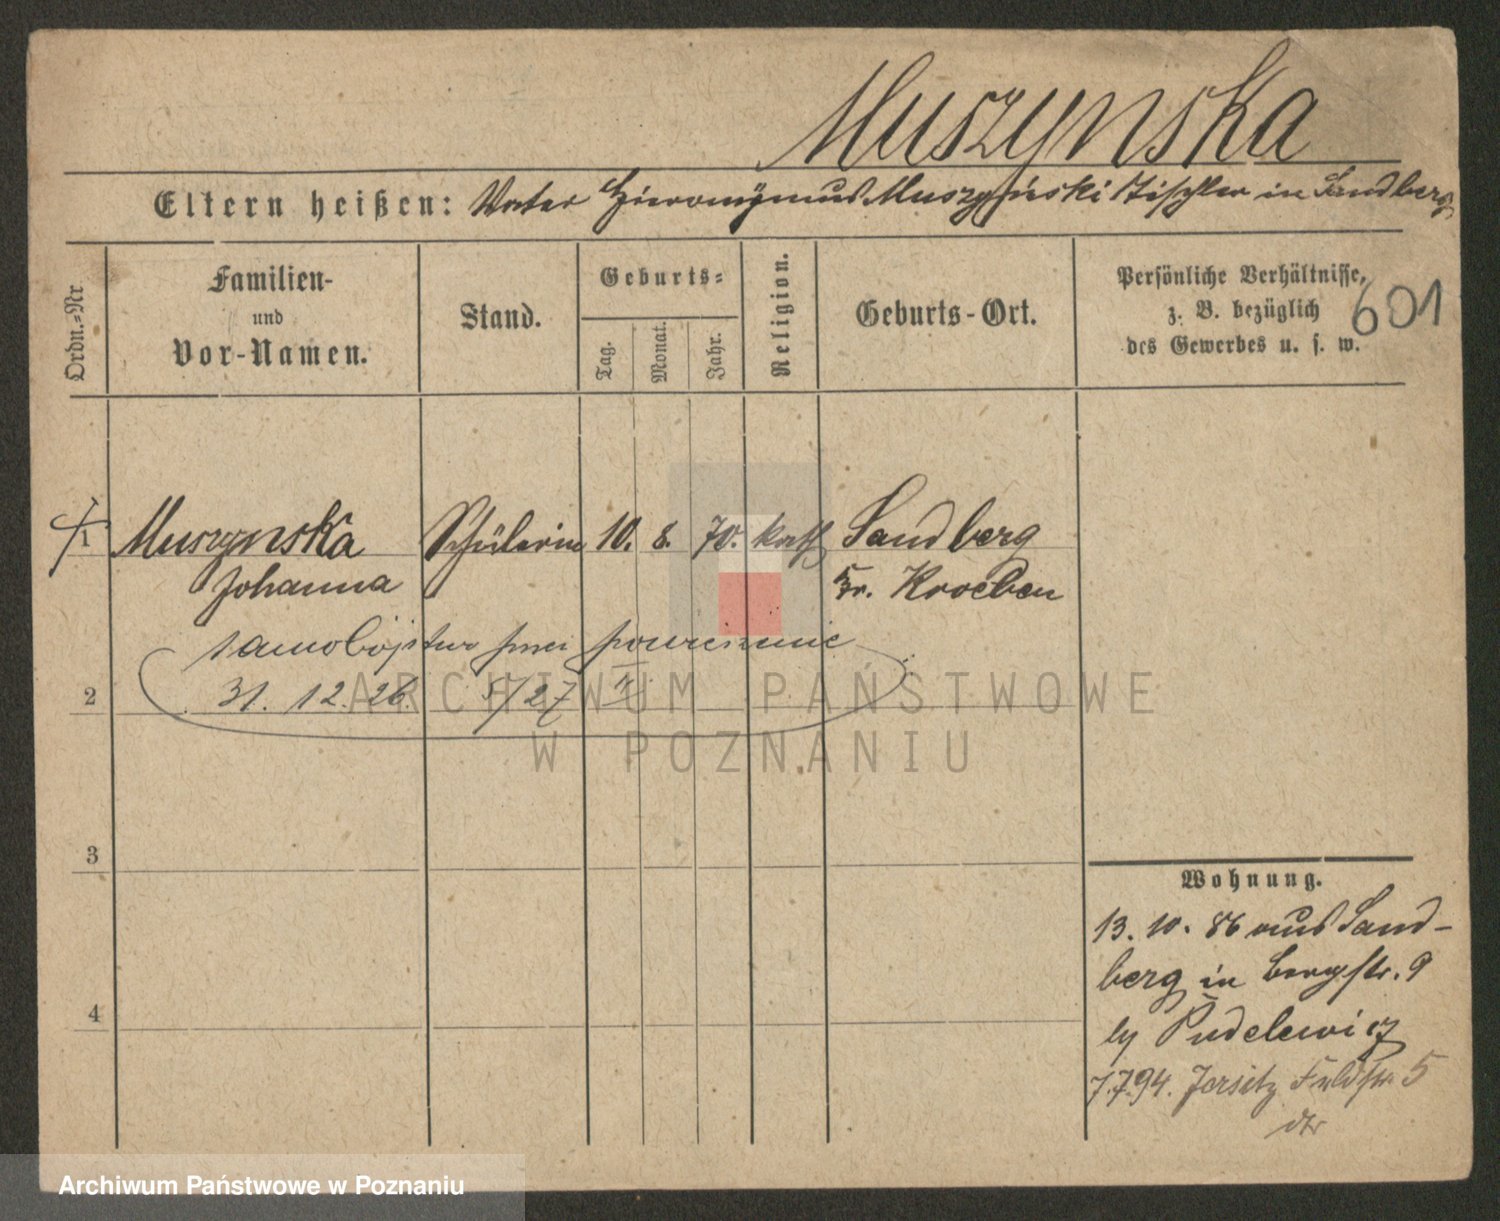 Muszynska
Eltern heißen: Vater Hieronÿmus Muszyński Tischler in Sandberg
Ordn.-Nr
Familien-
und
Vor-Namen.
Stand.
Geburts-
Tag.
Monat.
Jahr.
Religion.
Geburts-Ort.
Persönliche Verhältnisse,
z. B. bezüglich
des Gewerbes u. s. w.
601
1 Muszynska Schülerin 10. 8. 70. kath Sandberg
Johanna Kr. Kroeben
samobójstwo przez powieszenie
2 31. 12. 26. 5/27 II
3
4
Wohnung.
13. 10. 86 aus Sand-
berg in Bergstr. 9
by Pudelewicz
7.7.94. Jersitz Feldstr. 5
ARCHIWUM PAŃSTWOWE
W POZNANIU
Archiwum Państwowe w Poznaniu